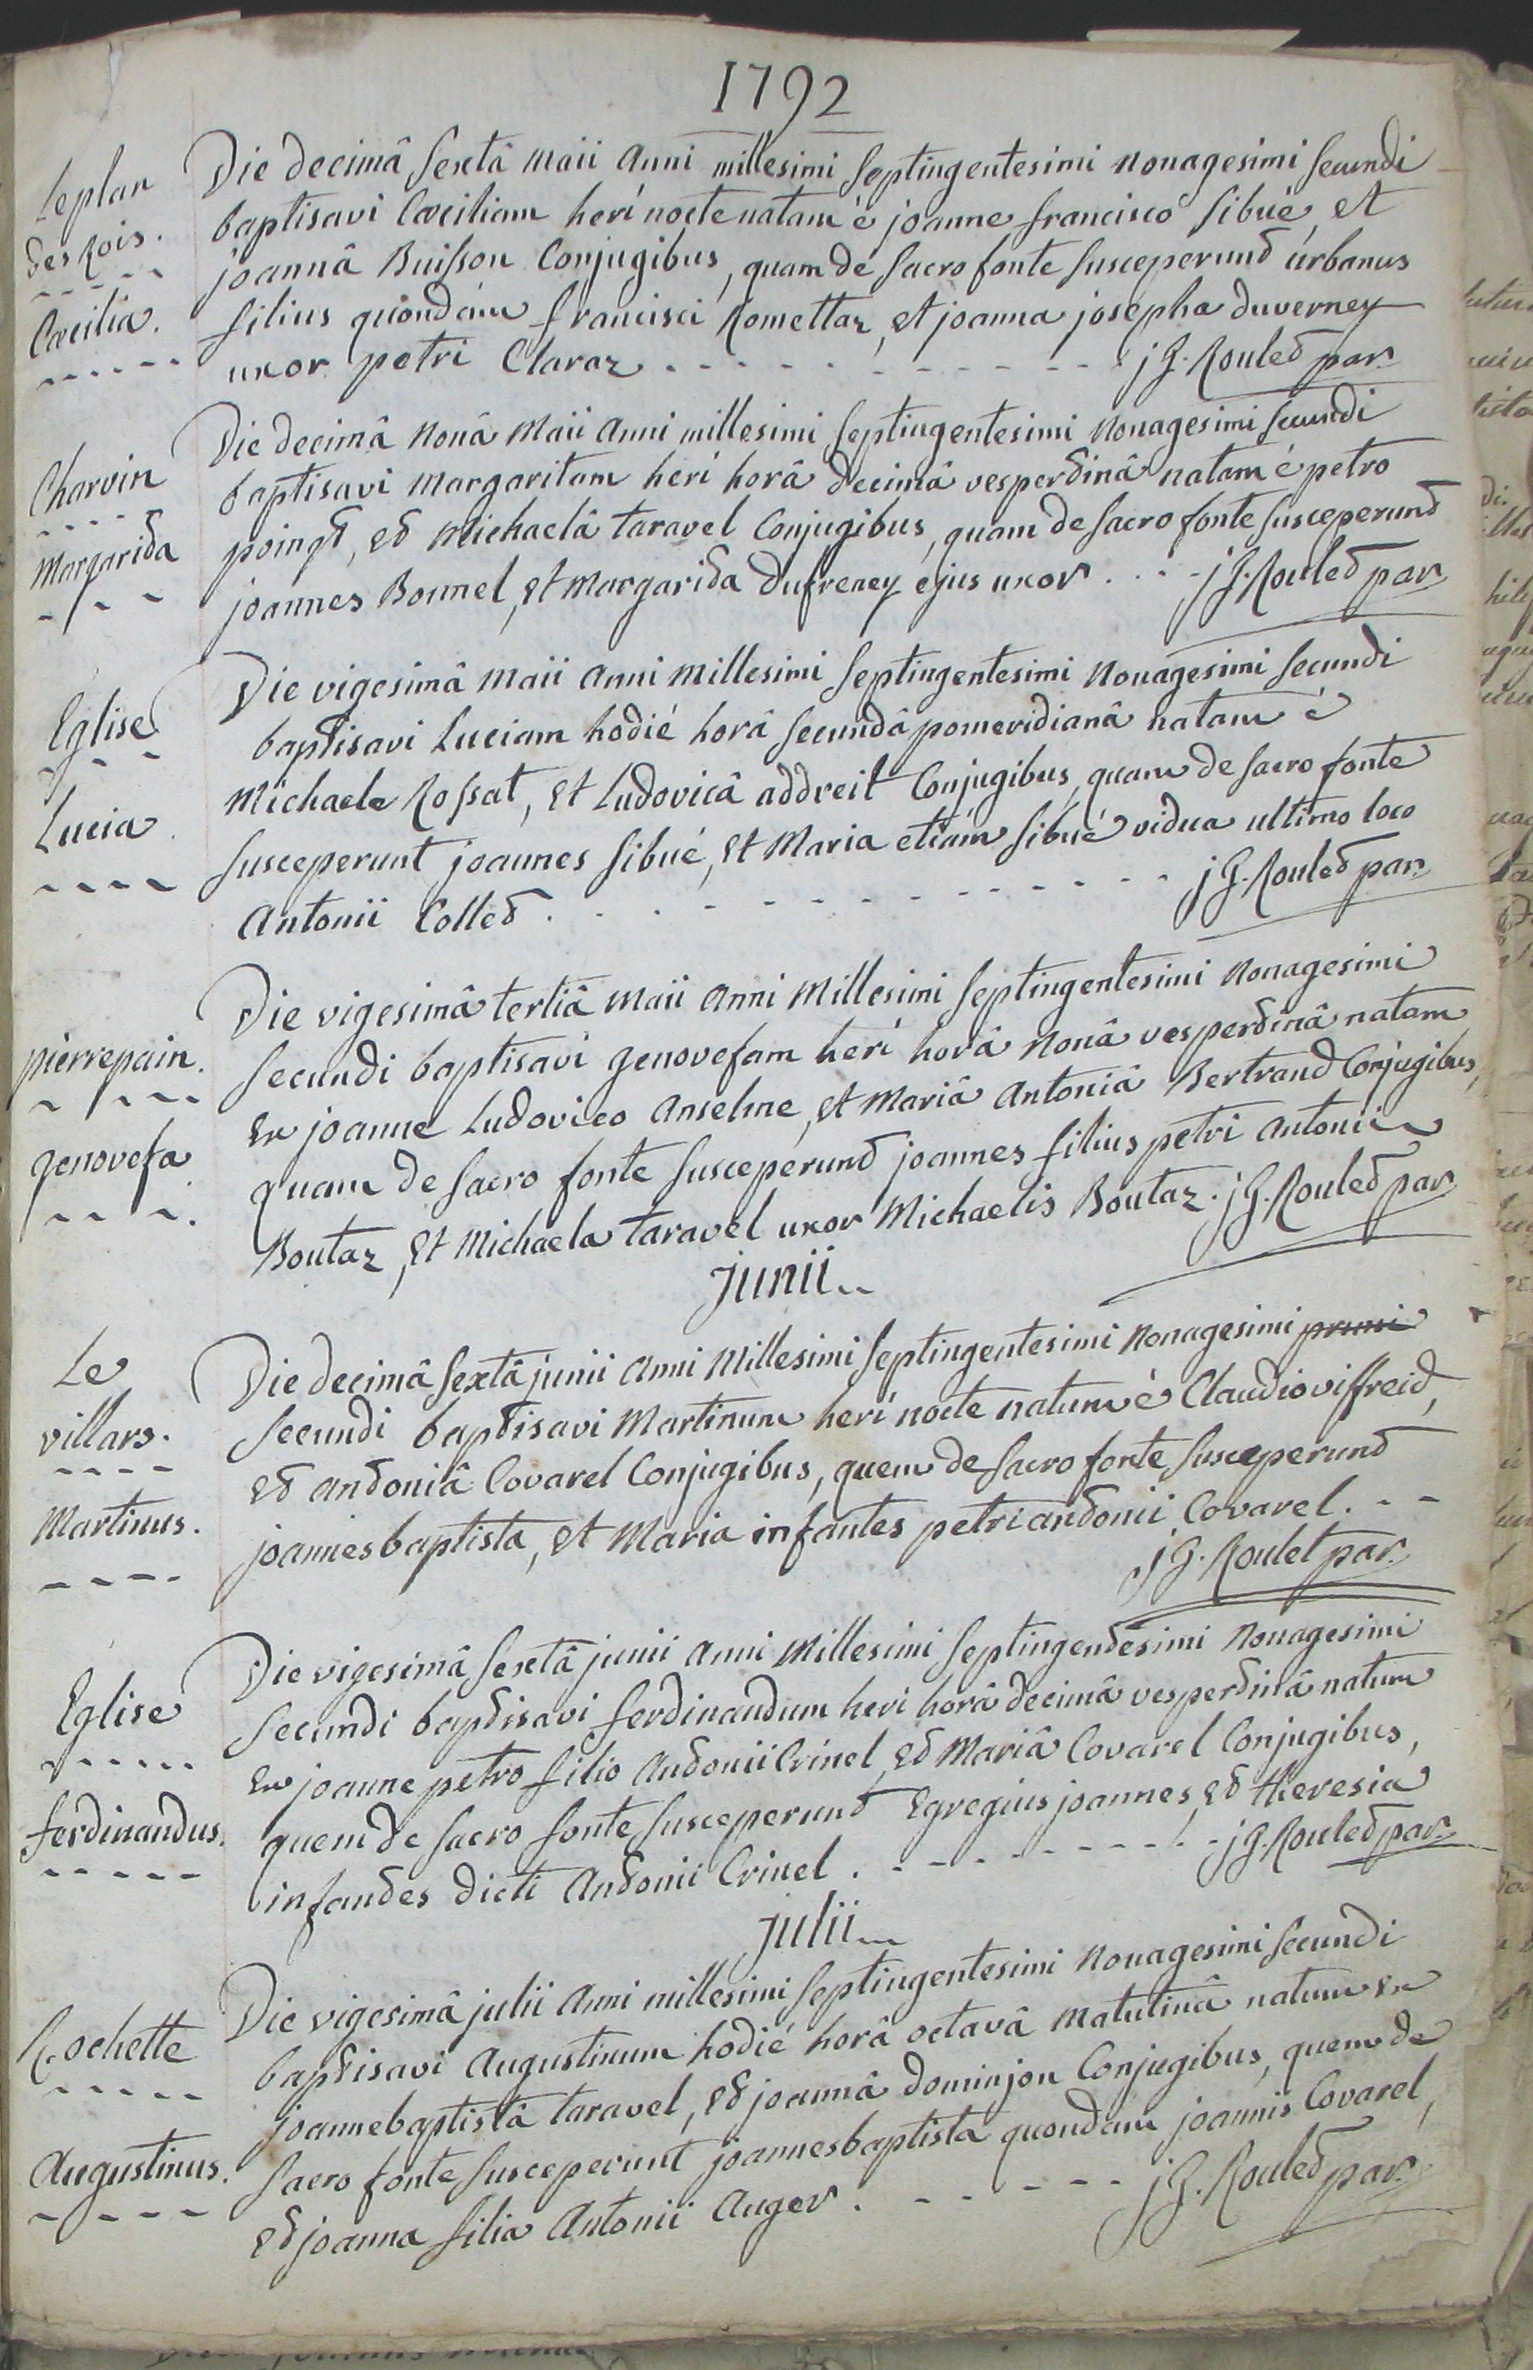 1792
Le plan
des Rois.
Cœcilia.
Die decimâ sextâ maii anni millesimi septingentesimi nonagesimi secundi
baptisavi Cœciliam heri nocte natam è joanne francisco sibué, et
joannâ Buisson Conjugibus, quam de sacro fonte susceperunt urbanus
filius quondam francisci Romettaz, et joanna josepha duverney
uxor petri Claraz - - - - - - - - - - j G. Roulet par.
Charvin
Margarita
Die decimâ nonâ Maii anni millesimi septingentesimi nonagesimi secundi
baptisavi Margaritam heri horâ decimâ vespertinâ natam è petro
poingt, et Michaelâ taravel Conjugibus, quam de sacro fonte susceperunt
joannes Bonnel, et Margarita dufreney ejus uxor . . - - j G. Roulet par
Eglise
Lucia.
Die vigesimâ maii anni millesimi septingentesimi nonagesimi secundi
baptisavi Luciam hodié horâ secundâ pomeridianâ natam è
Michaele Rossat, et Ludovicâ addreit Conjugibus, quam de sacro fonte
susceperunt joannes sibué, et Maria etiam sibué vidua ultimo loco
Antonii Collet . - - - - - - - - - - j G. Roulet par.
pierrepain.
genovefa
Die vigesimâ tertiâ maii anni Millesimi septingentesimi nonagesimi
secundi baptisavi genovefam heri horâ nonâ vespertinâ natam
ex joanne Ludovico Anselme, et Mariâ Antoniâ Bertrand Conjugibus,
quam de sacro fonte susceperunt joannes filius petri antonii
Boutaz, et Michaela taravel uxor Michaelis Boutaz. j G. Roulet par
junii
Le
villars.
Martinus.
Die decimâ sextâ junii anni Millesimi septingentesimi nonagesimi primi
secundi baptisavi Martinum heri nocte natum è Claudio viffreid,
et antoniâ Covarel Conjugibus, quem de sacro fonte susceperunt
joannesbaptista, et Maria infantes petri antonii Covarel. - -
j G. Roulet par.
Eglise
ferdinandus.
Die vigesimâ sextâ junii anni Millesimi septingentesimi nonagesimi
secundi baptisavi ferdinandum heri horâ decimâ vespertinâ natum
ex joanne petro filio Antonii Crinel, et Mariâ Covarel Conjugibus,
quem de sacro fonte susceperunt Egregius joannes, et theresia
infantes dicti Antonii Crinel . - - - - - - - - j G. Roulet par.
julii
Rochette
Augustinus.
Die vigesimâ julii anni millesimi septingentesimi nonagesimi secundi
baptisavi Augustinum hodié horâ octavâ matutinâ natum ex
joannebaptistâ taravel, et joannâ dominjon Conjugibus, quem de
sacro fonte susceperunt joannesbaptista quondam joannis Covarel,
et joanna filia Antonii Auger . - - - - - j G. Roulet par.